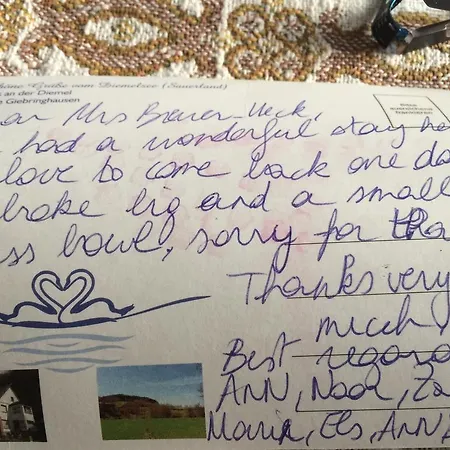 höne Grüße vom Diemelsee (Sauerland)
an der Diemel
Giebringhausen
ar Mrs Brever-Ueck,
had a wonderful stay he
love to come back one da
broke big and a small
ss bowl, sorry for tha
Thanks very
much,
Best regard
ANN, Noor, Za
Marie, Els, ANN,